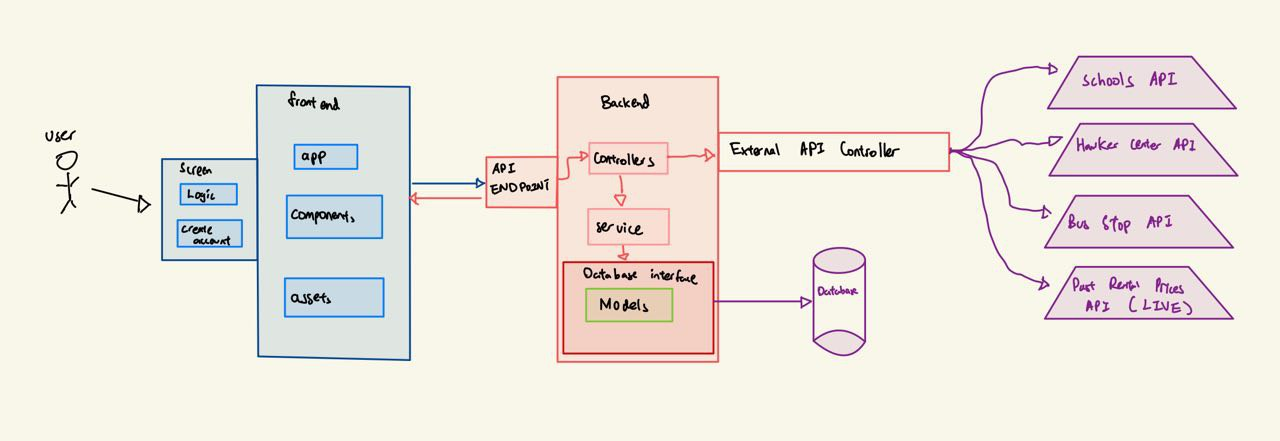 user
screen
Logic
create
account
frontend
app
components
assets
API
ENDPOINT
Backend
Controllers
service
Database interface
Models
External API Controller
Database
Schools API
Hawker Center API
Bus Stop API
Past Rental Prices
API (LIVE)